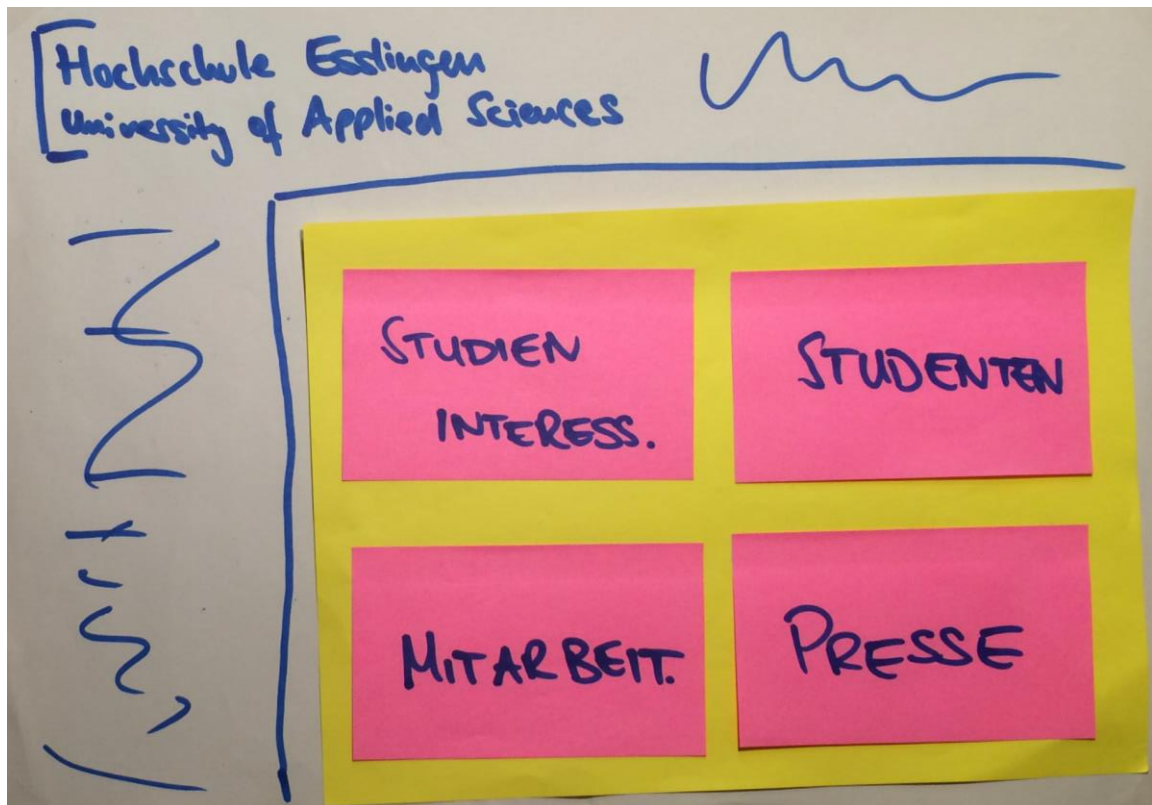 Hochschule Esslingen
University of Applied Sciences
STUDIEN
INTERESS.
STUDENTEN
MITARBEIT.
PRESSE